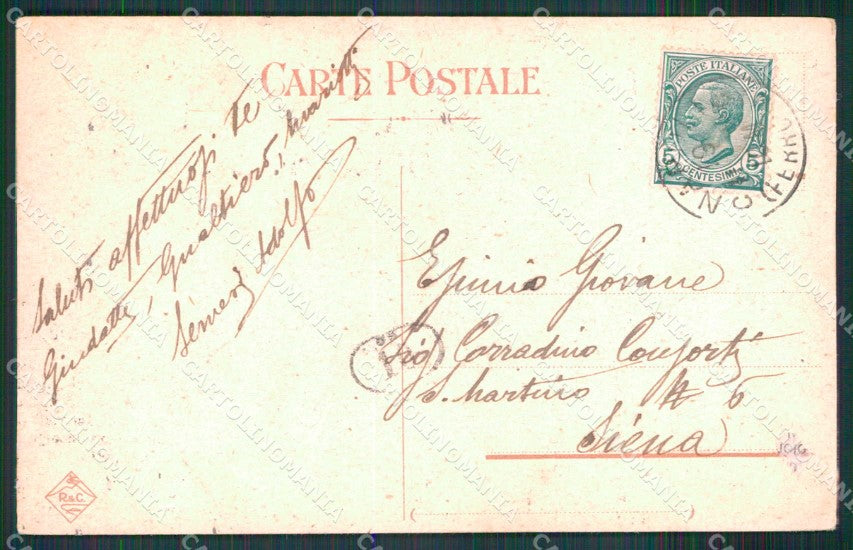 CARTE POSTALE
Saluti affettuosi te
Gualtiero, Mariotti
Adolfo
POSTE ITALIANE
5 CENTESIMI 5
CENTO (FERRARA)
Giovane
Sig Corradino Conforti
S. Martino N 6
Siena
R&C.
CARTOLINOMANIA